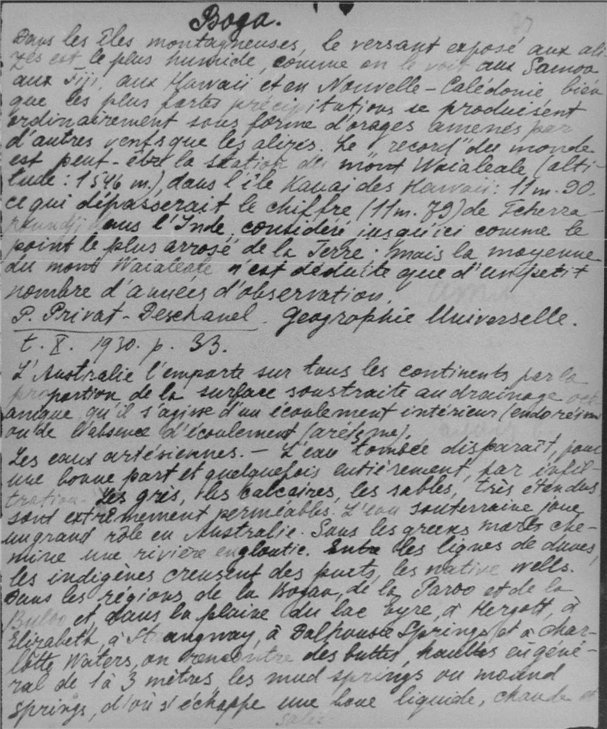 Вода.
Dans les îles montagneuses, le versant exposé aux ali-
zés est le plus humide, comme on le voit aux Samoa
aux Fiji, aux Hawaii et en Nouvelle-Calédonie bien
que les plus fortes précipitations se produisent
ordinairement sous forme d'orages amenés par
d'autres vents que les alizés. Le "record" du monde
est peut-être la station du mont Waialeale (alti-
tude: 1546 m.), dans l'île Kauai des Hawaii: 11 m. 90.
ce qui dépasserait le chiffre (11 m. 79) de Tcherra-
poundji dans l'Inde, considéré jusqu'ici comme le
point le plus arrosé de la Terre; mais la moyenne
du mont Waialeale n'est déduite que d'un petit
nombre d'années d'observation.
P. Privat-Deschanel. Geographie Universelle.
t. X. 1930. p. 33.
L'Australie l'emporte sur tous les continents par la
proportion de la surface soustraite au drainage océ-
anique, qu'il s'agisse d'un écoulement intérieur (endoréisme)
ou de l'absence d'écoulement (aréisme).
Les eaux artésiennes. - L'eau tombée disparaît, pour
une bonne part et quelquefois entièrement, par infil-
tration. Les grès, les calcaires, les sables, très étendus,
sont extrêmement perméables. L'eau souterraine joue
un grand rôle en Australie. Sous les creeks morts che-
mine une rivière engloutie. Entre les lignes de dunes,
les indigènes creusent des puits, les native wells.
Dans les régions de la Bogan, de la Paroo et de la
Bulloo et, dans la plaine du lac Eyre, à Hergott, à
Elizabeth, à Strangway, à Dalhousie Springs et à Char-
lotte Waters, on rencontre des buttes, hautes en géné-
ral de 1 à 3 mètres, les mud springs ou mound
springs, d'où s'échappe une boue liquide, chaude et
salée